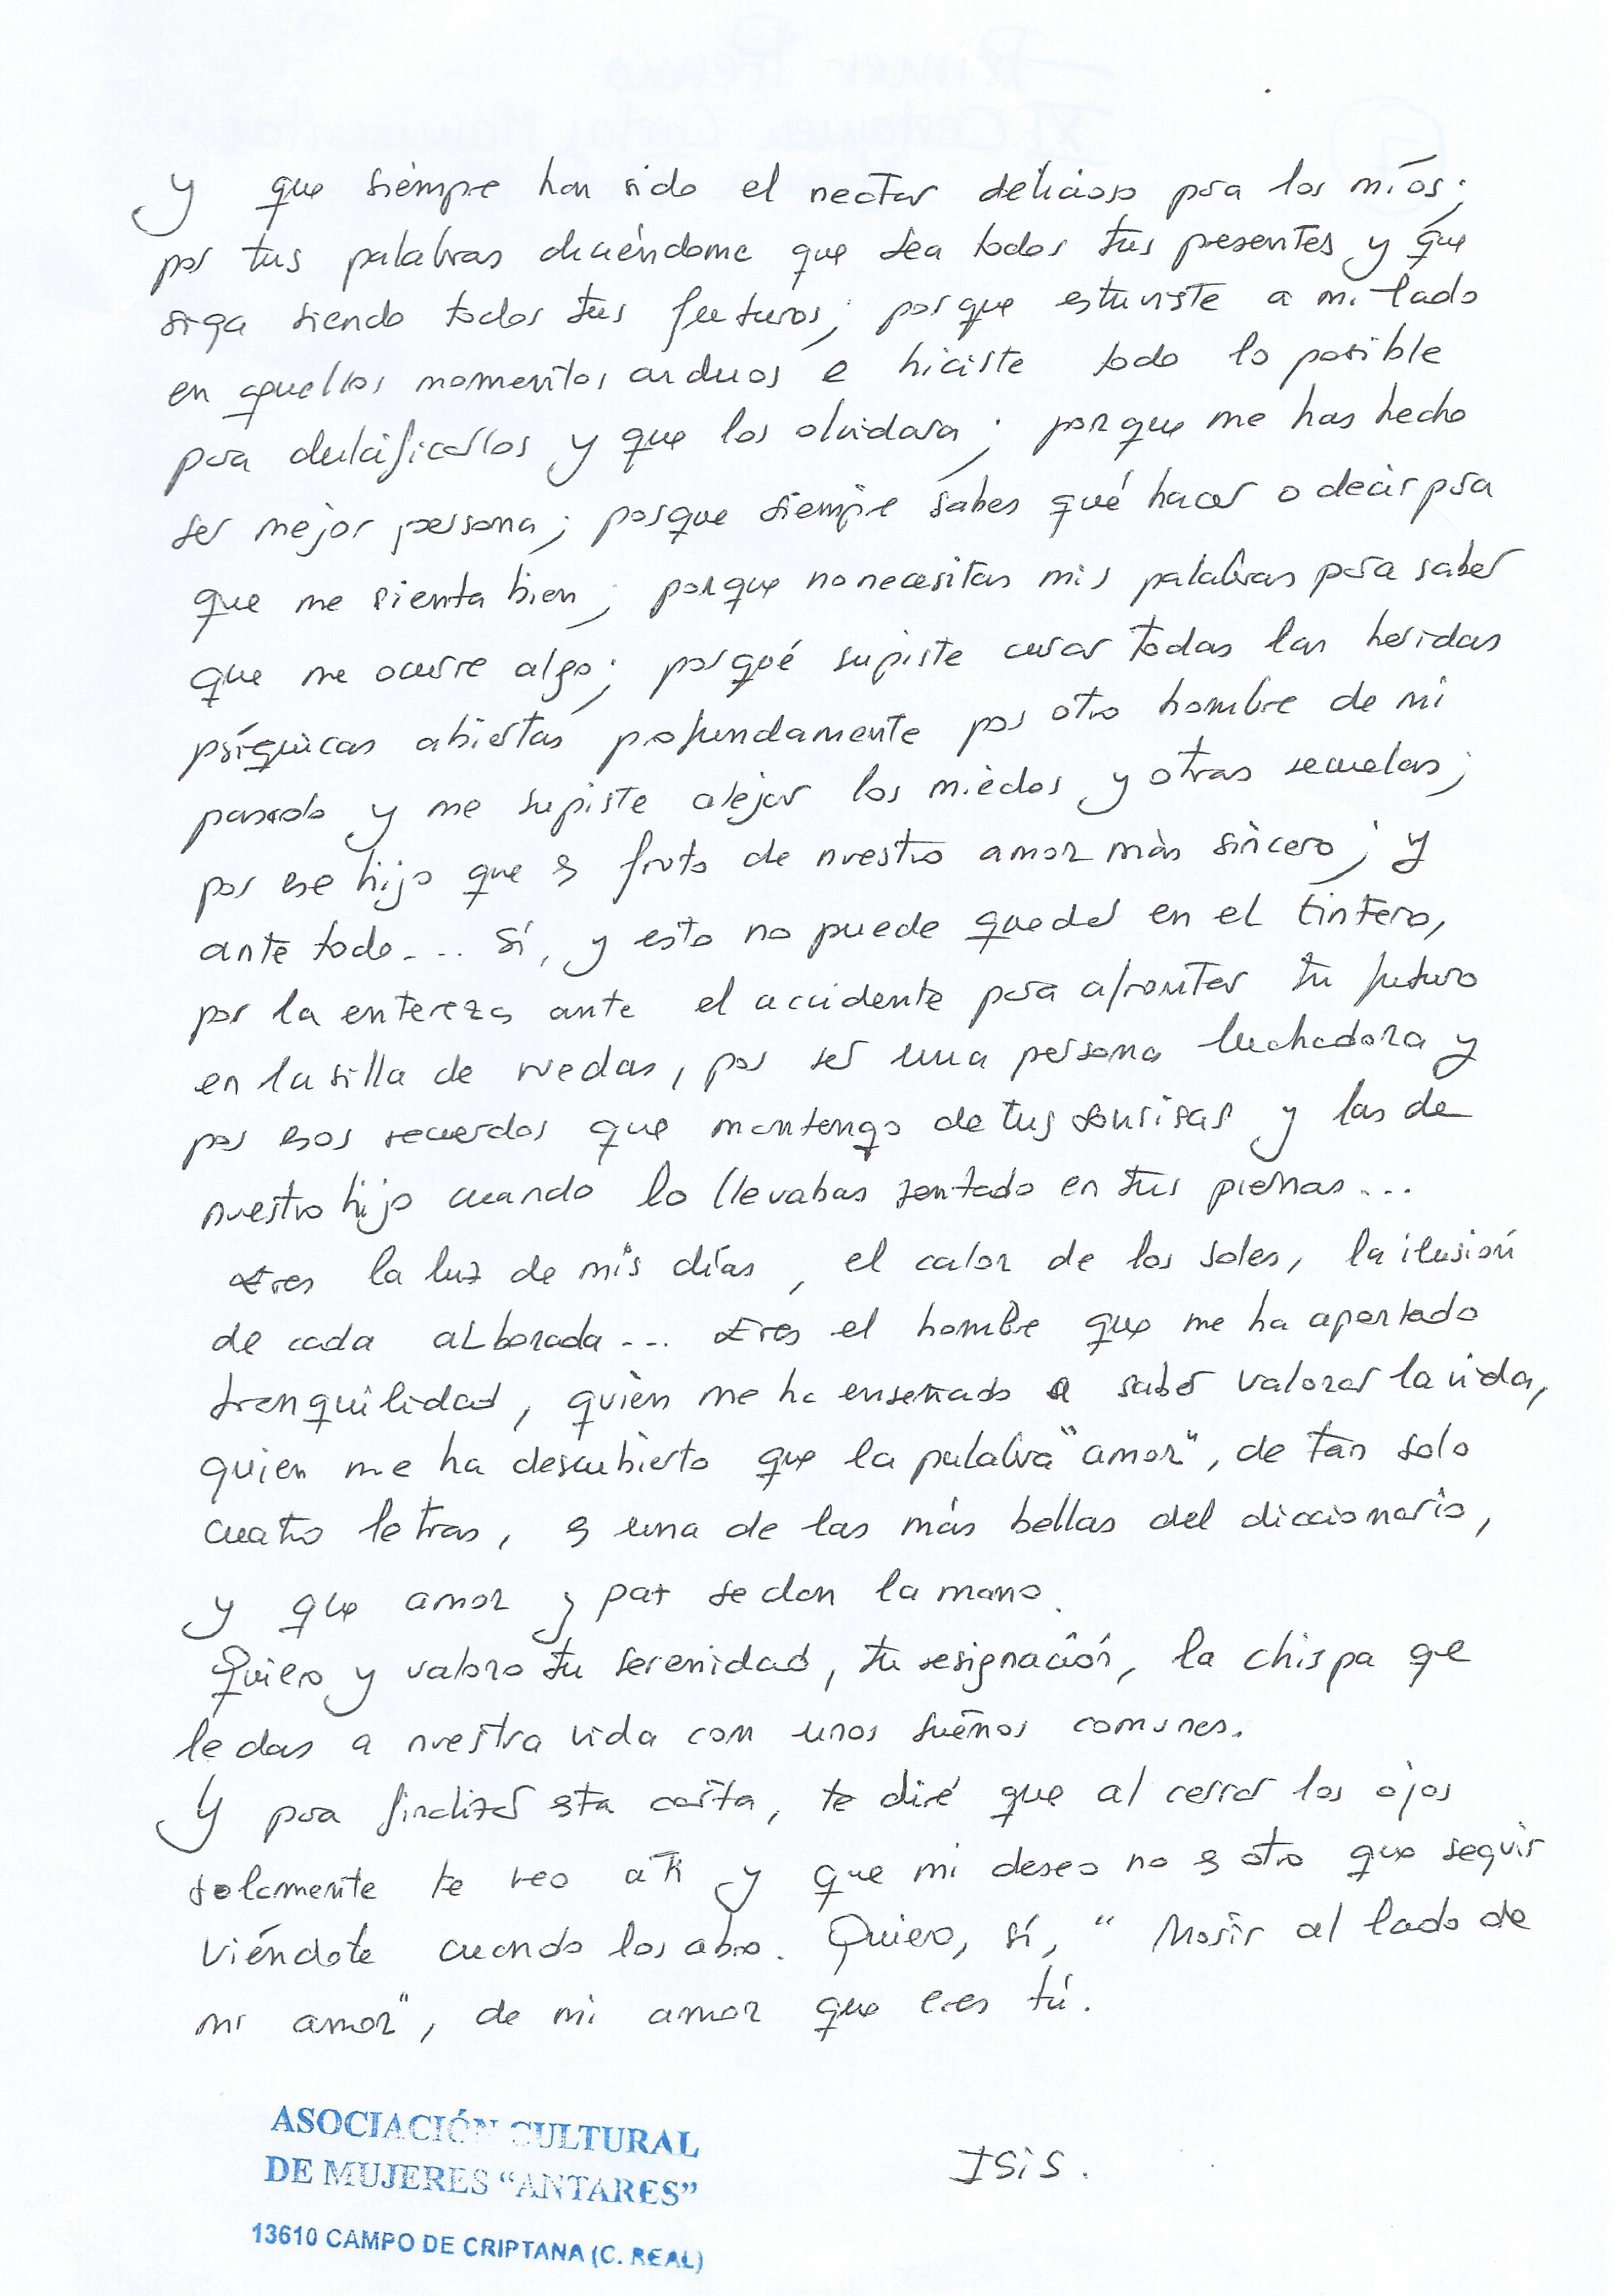 y que siempre han sido el nectar delicioso para los míos;
por tus palabras diciéndome que sea todos tus presentes y que
siga siendo todos tus futuros; porque estuviste a mi lado
en aquellos momentos arduos e hiciste todo lo posible
para dulcificarlos y que los olvidara; porque me has hecho
ser mejor persona; porque siempre sabes qué hacer o decir para
que me sienta bien; porque no necesitas mis palabras para saber
que me ocurre algo; porqué supiste curar todas las heridas
psíquicas abiertas profundamente por otro hombre de mi
pasado y me supiste alejar los miedos y otras secuelas;
por ese hijo que es fruto de nuestro amor más sincero; y
ante todo... sí, y esto no puede quedar en el tintero,
por la entereza ante el accidente para afrontar tu futuro
en la silla de ruedas, por ser una persona luchadora y
por esos recuerdos que mantengo de tus sonrisas y las de
nuestro hijo cuando lo llevabas sentado en tus piernas...
Eres la luz de mis días, el calor de los soles, la ilusión
de cada alborada... Eres el hombre que me ha aportado
tranquilidad, quien me ha enseñado a saber valorar la vida,
quien me ha descubierto que la palabra "amor", de tan solo
cuatro letras, es una de las más bellas del diccionario,
y que amor y paz se dan la mano.
Quiero y valoro tu serenidad, tu resignación, la chispa qe
le das a nuestra vida con unos sueños comunes.
Y para finalizar esta carta, te diré que al cerrar los ojos
solamente te veo a ti y que mi deseo no es otro que seguir
viéndote cuando los abro. Quiero, sí, "Morir al lado de
mi amor", de mi amor que eres tú.
Isis.
ASOCIACIÓN CULTURAL
DE MUJERES "ANTARES"
13610 CAMPO DE CRIPTANA (C. REAL)